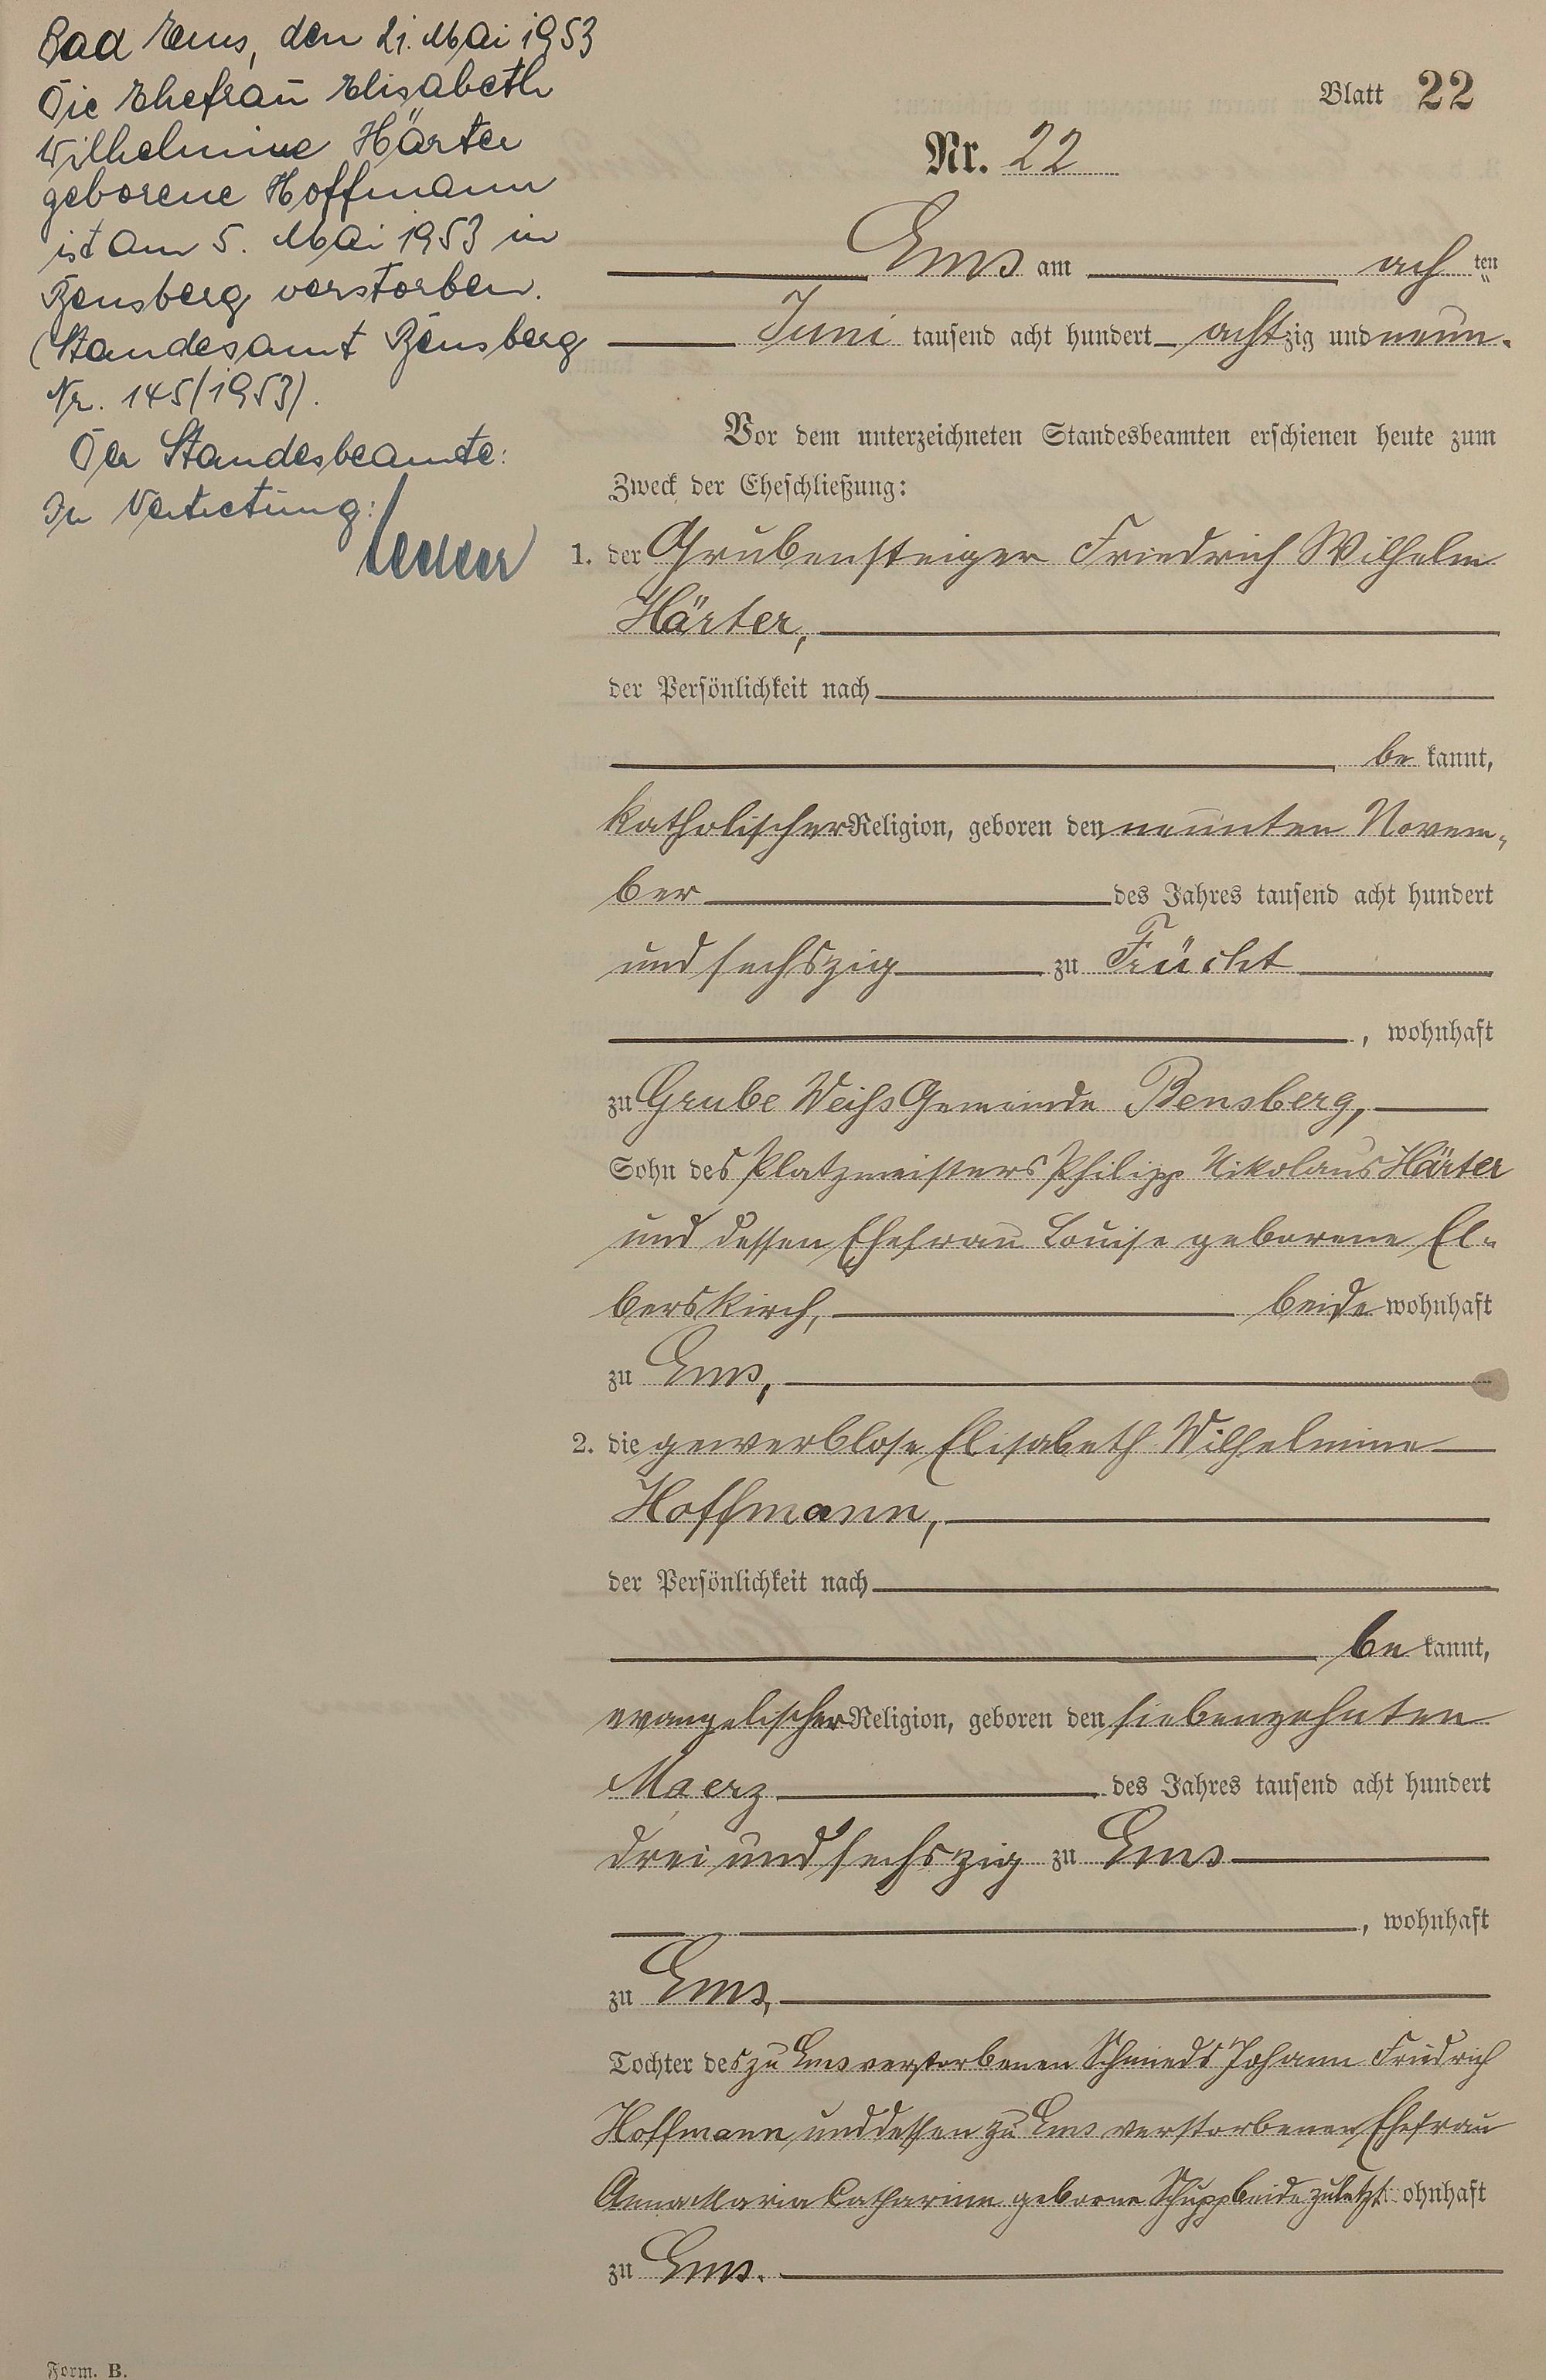 Bad Ems, den 21. Mai 1953
Die Ehefrau Elisabeth
Wilhelmine Härter
geborene Hoffmann
ist am 5. Mai 1953 in
Bensberg verstorben.
(Standesamt Bensberg
Nr. 145/1953).
Der Standesbeamte:
In Vertretung:
Blatt 22
Nr. 22
Ems am ach ten
Juni tausend acht hundert achtzig und neun.
Vor dem unterzeichneten Standesbeamten erschienen heute zum
Zweck der Eheschließung:
1. der Grubensteiger Friedrich Wilhelm
Härter,
der Persönlichkeit nach
be kannt,
katholischer Religion, geboren den neunten Novem-
ber des Jahres tausend acht hundert
und sechszig zu Frücht
, wohnhaft
zu Grube Weiß Gemeinde Bensberg,
Sohn des Platzmeisters Philipp Nikolaus Härter
und dessen Ehefrau Louise geborene El-
berskirch, beide wohnhaft
zu Ems,
2. die gewerblose Elisabeth Wilhelmine
Hoffmann,
der Persönlichkeit nach
be kannt,
evangelischer Religion, geboren den siebenzehnten
Maerz des Jahres tausend acht hundert
drei und sechszig zu Ems
, wohnhaft
zu Ems,
Tochter des zu Ems verstorbenen Schmieds Johann Friedrich
Hoffmann und dessen zu Ems verstorbenen Ehefrau
Anna Maria Catharine geborne Schupp beide zuletzt ohnhaft
zu Ems.
Form. B.